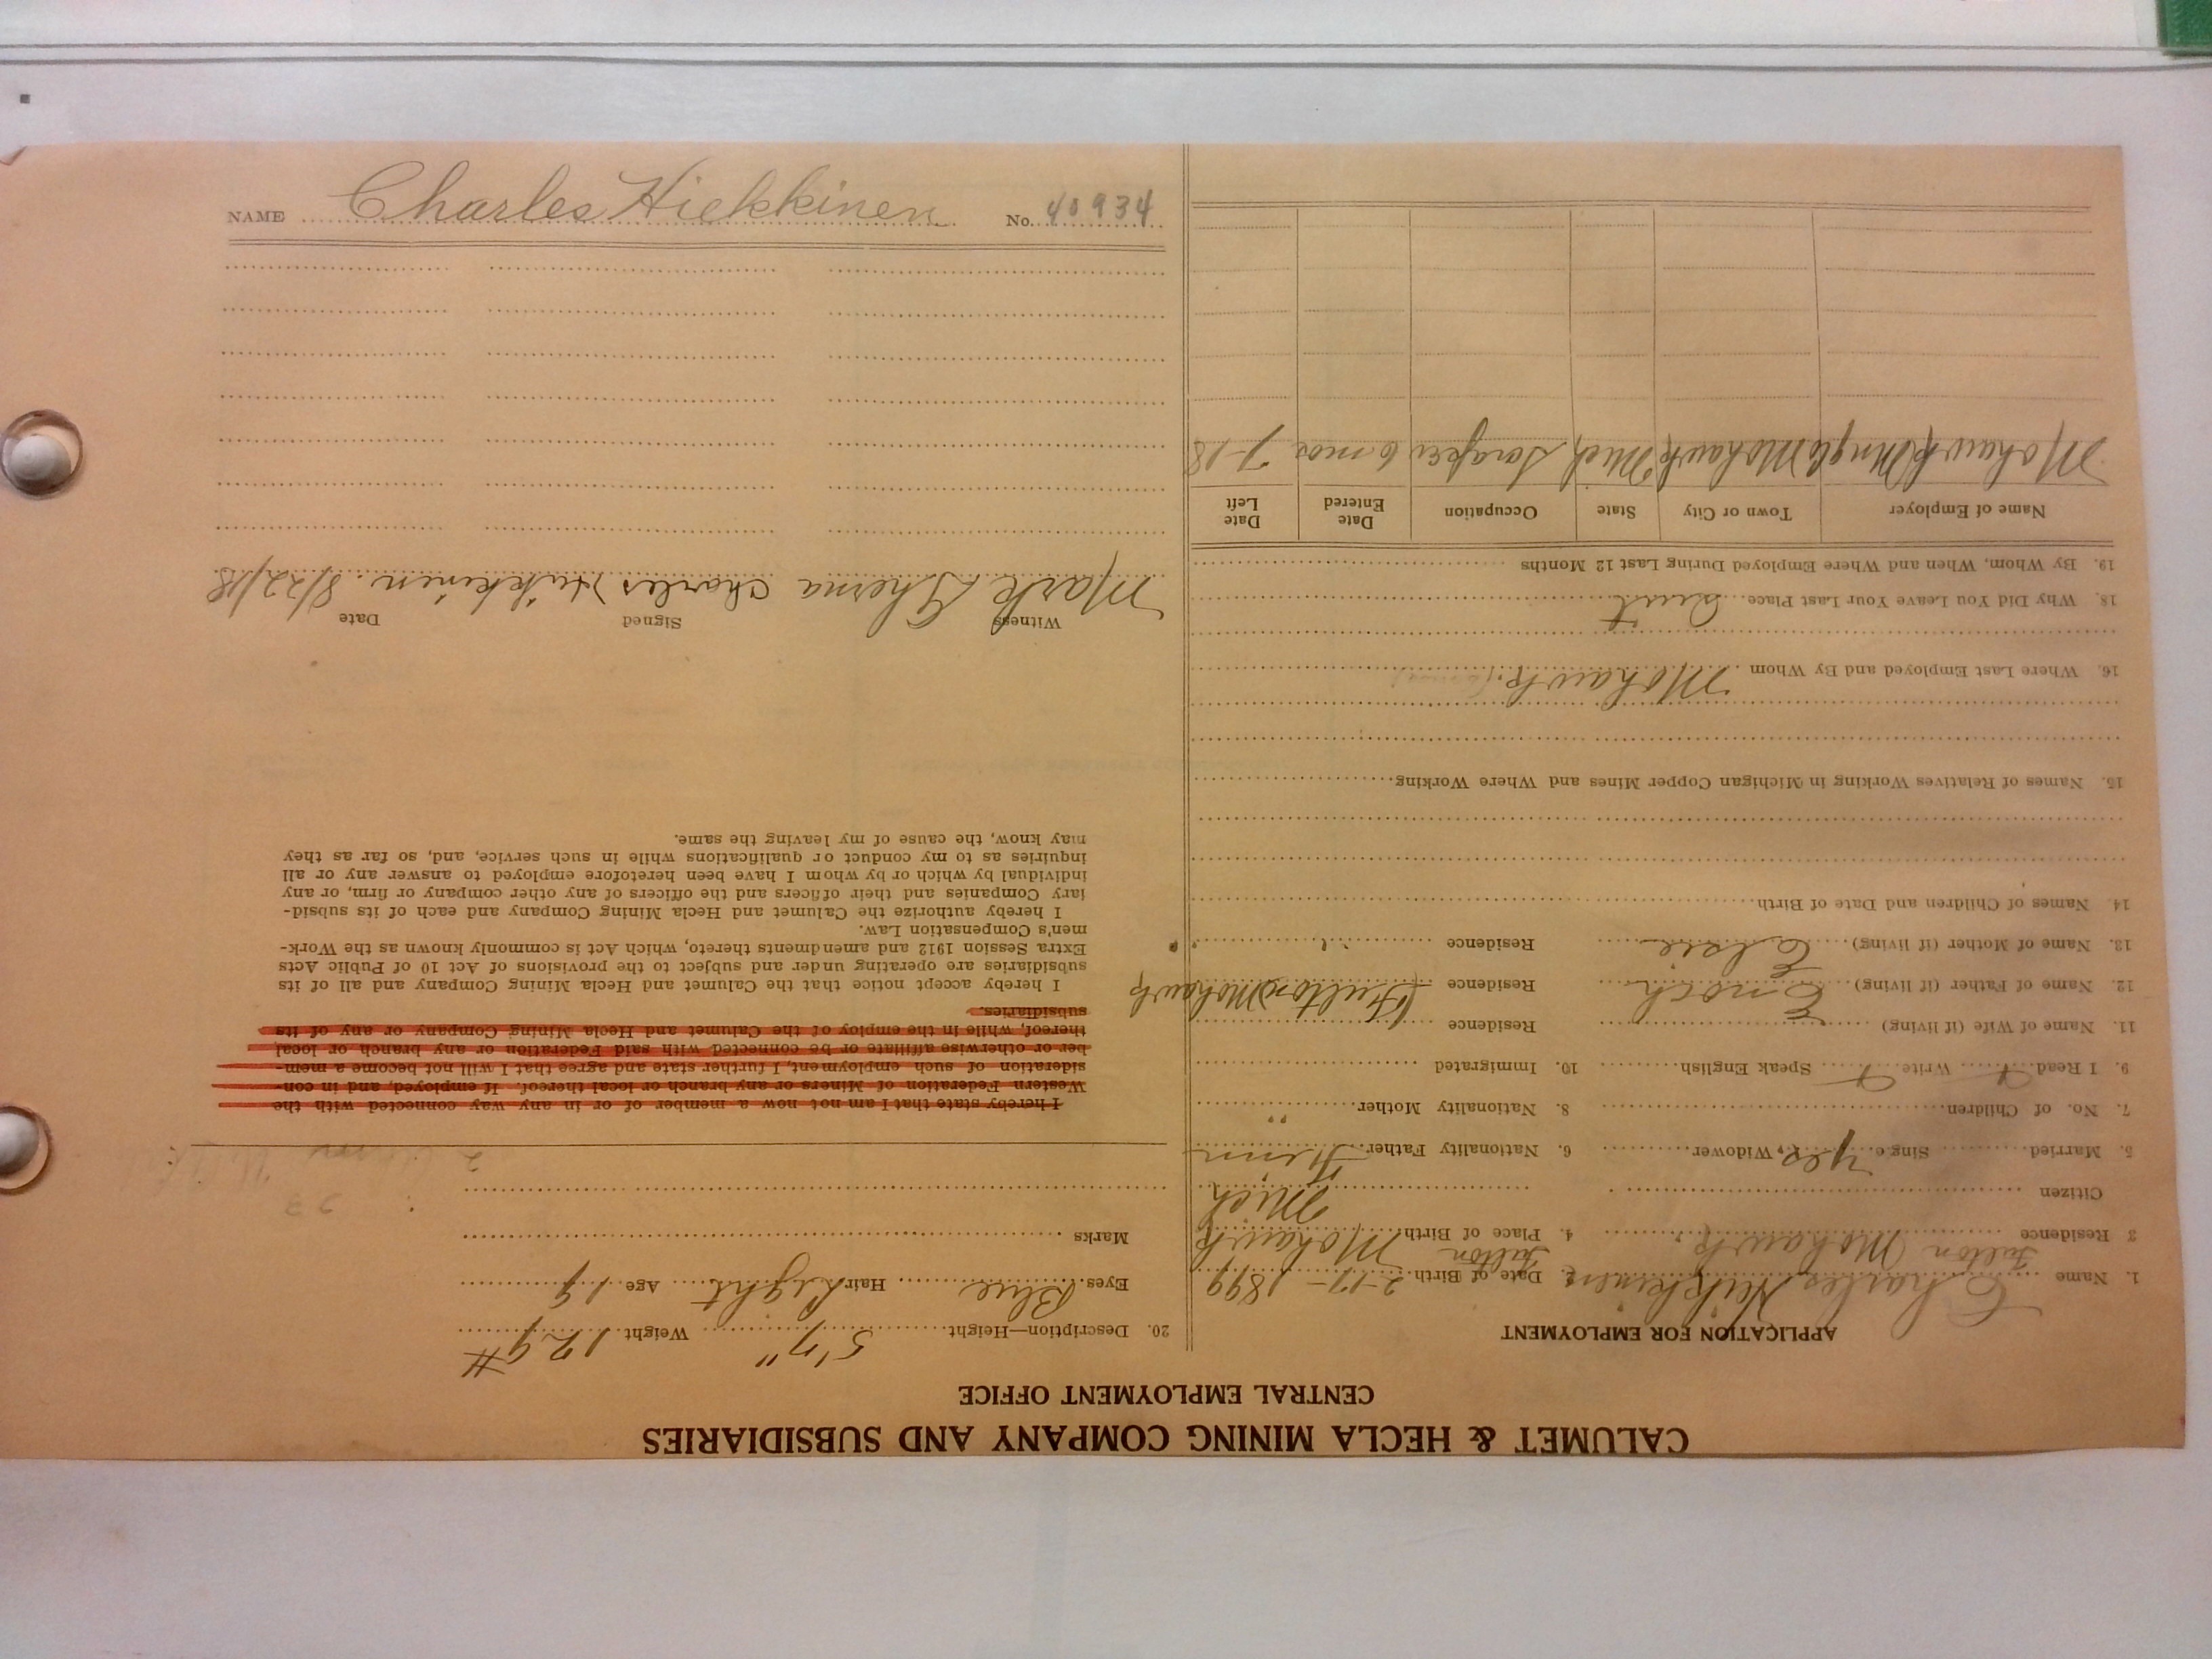 NAME Charles Hiekkinen No. 40934
CALUMET & HECLA MINING COMPANY AND SUBSIDIARIES
CENTRAL EMPLOYMENT OFFICE
APPLICATION FOR EMPLOYMENT
1. Name Charles Heikkinen 2. Date of Birth 2-17-1899
3 Residence Fulton Mohawk 4. Place of Birth Fulton Mohawk
Citizen Mich
5. Married Single yes, Widower 6. Nationality Father Finn
7. No. of Children 8. Nationality Mother "
9. I Read Write Speak English 10. Immigrated
11. Name of Wife (if living) Residence
12. Name of Father (if living) Enoch Residence (Fulton) Mohawk
13. Name of Mother (if living) Elsie Residence "
14. Names of Children and Date of Birth
15. Names of Relatives Working in Michigan Copper Mines and Where Working
16. Where Last Employed and By Whom Mohawk
18. Why Did You Leave Your Last Place Quit
19. By Whom, When and Where Employed During Last 12 Months
Name of Employer Town or City State Occupation Date Entered Date Left
Mohawk Mng Co Mohawk Mich 6 mos 7-18
20. Description—Height 5'7" Weight 129#
Eyes Blue Hair Light Age 19
Marks
I hereby state that I am not now a member of or in any way connected with the
Western Federation of Miners or any branch or local thereof. If employed, and in con-
sideration of such employment, I further state and agree that I will not become a mem-
ber or otherwise affiliate or be connected with said Federation or any branch or local
thereof, while in the employ of the Calumet and Hecla Mining Company or any of its
subsidiaries.
I hereby accept notice that the Calumet and Hecla Mining Company and all of its
subsidiaries are operating under and subject to the provisions of Act 10 of Public Acts
Extra Session 1912 and amendments thereto, which Act is commonly known as the Work-
men's Compensation Law.
I hereby authorize the Calumet and Hecla Mining Company and each of its subsid-
iary Companies and their officers and the officers of any other company or firm, or any
individual by which or by whom I have been heretofore employed to answer any or all
inquiries as to my conduct or qualifications while in such service, and, so far as they
may know, the cause of my leaving the same.
Witness Signed Date
Mark Charles Heikkinen 8/22/18